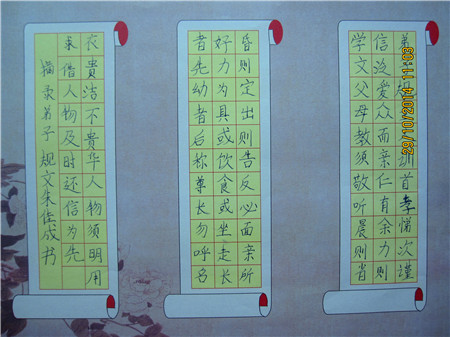 弟子规圣人训首孝悌次謹
信泛爱众而亲仁有余力则
学文父母教须敬听晨则省
昏则定出则告反必面亲所
好力为具或饮食或坐走长
者先幼者后称尊长勿呼名
衣贵洁不贵华人物须明用
求借人物及时还信为先
摘录弟子规文朱佳成书
29/10/2014 11:03